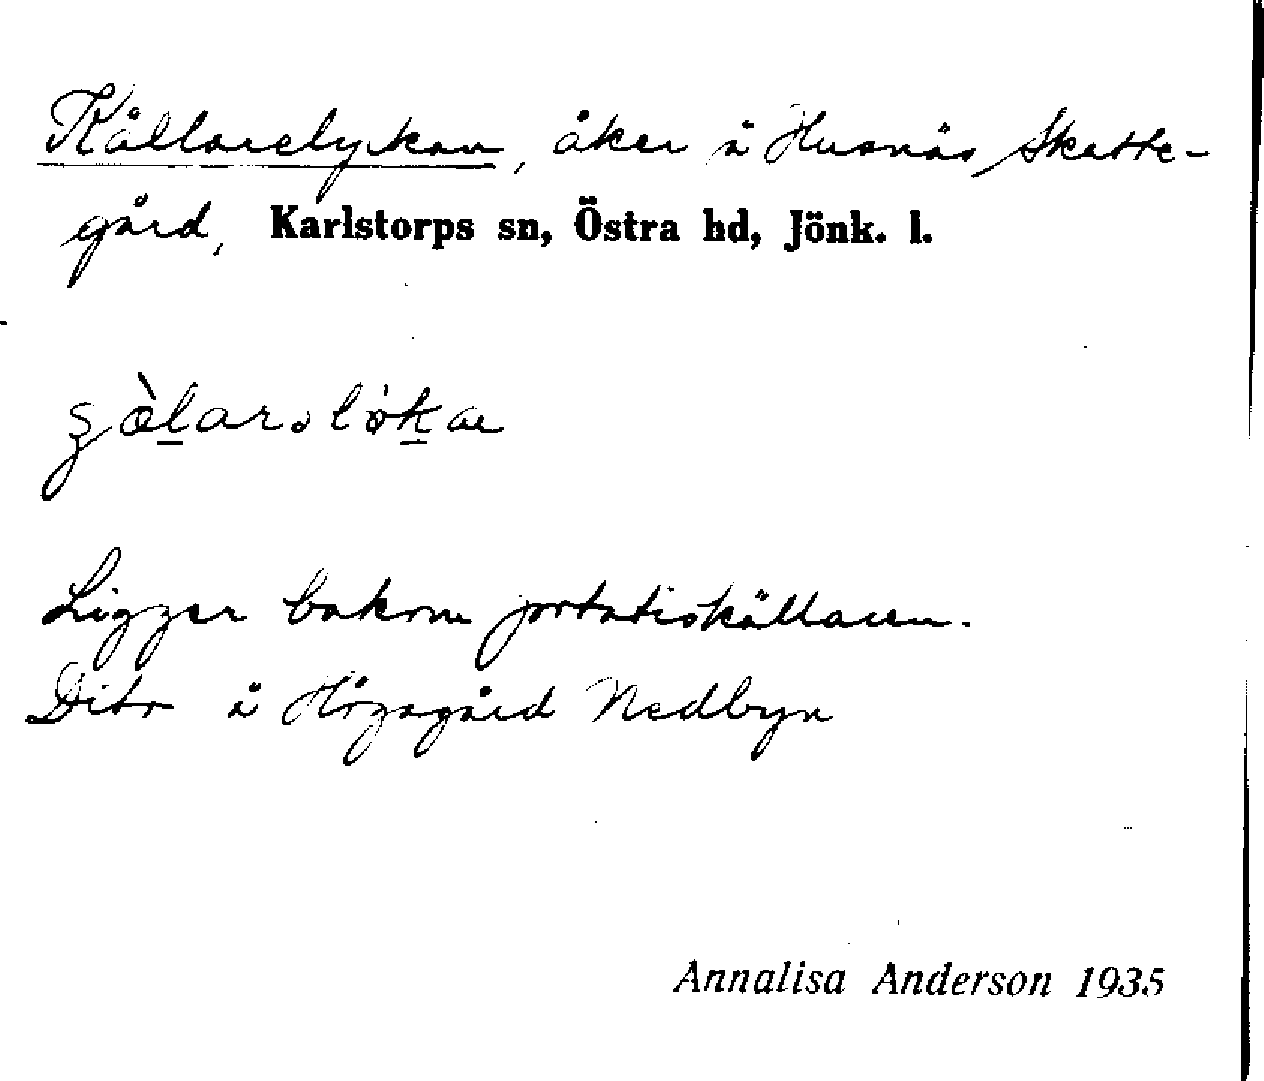 Källarelyckan, åker å Husnäs Skatte-
gård, Karlstorps sn, Östra hd, Jönk. l.
Ligger bakom portatiskällaren.
Dito å Högagärd Nedbyn
Annalisa Anderson 1935